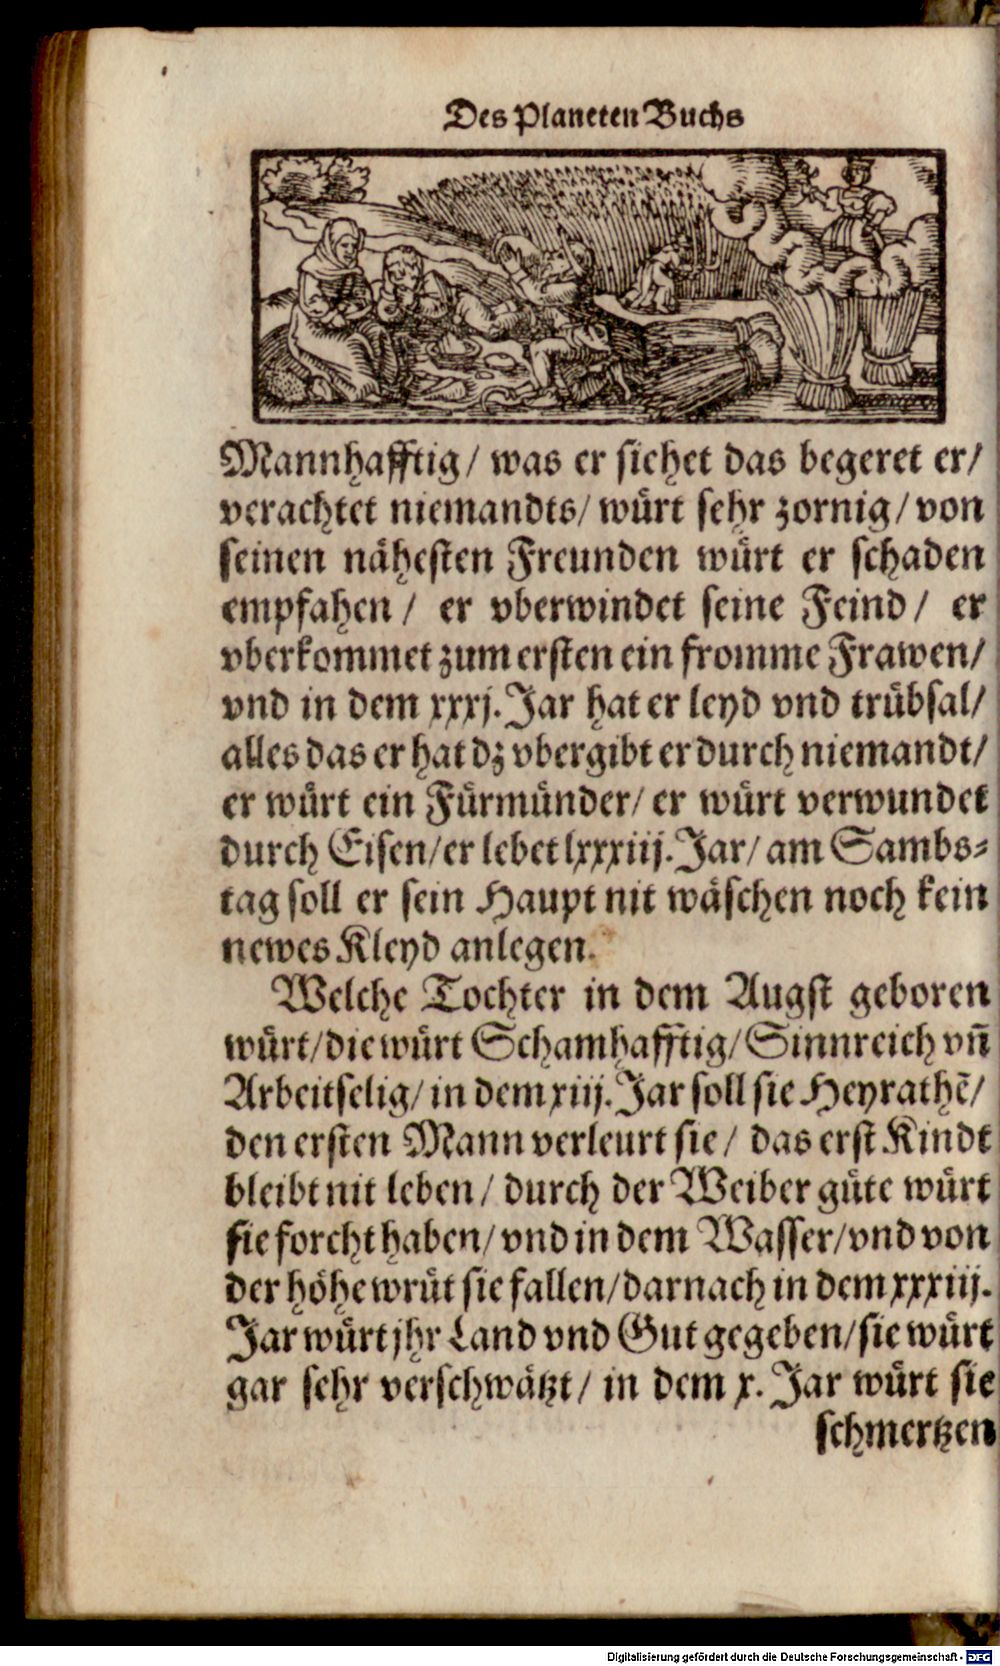 Des Planeten Buchs
Mannhafftig/ was er sichet das begeret er/
verachtet niemandts/ würt sehr zornig/ von
seinen nähesten Freunden würt er schaden
empfahen/ er vberwindet seine Feind/ er
vberkommet zum ersten ein fromme Frawen/
vnd in dem xxxj. Jar hat er leyd vnd trübsal/
alles das er hat dz vbergibt er durch niemandt/
er würt ein Fürmünder/ er würt verwundet
durch Eisen/ er lebet lxxxiij. Jar/ am Sambs⸗
tag soll er sein Haupt nit wäschen noch kein
newes Kleyd anlegen.
Welche Tochter in dem Augst geboren
würt/ die würt Schamhafftig/ Sinnreich vñ
Arbeitselig/ in dem xiij. Jar soll sie Heyrathẽ/
den ersten Mann verleurt sie/ das erst Kindt
bleibt nit leben/ durch der Weiber güte würt
sie forcht haben/ vnd in dem Wasser/ vnd von
der höhe wrüt sie fallen/ darnach in dem xxxiij.
Jar würt jhr Land vnd Gut gegeben/ sie würt
gar sehr verschwätzt/ in dem x. Jar würt sie
schmertzen
Digitalisierung gefördert durch die Deutsche Forschungsgemeinschaft - DFG